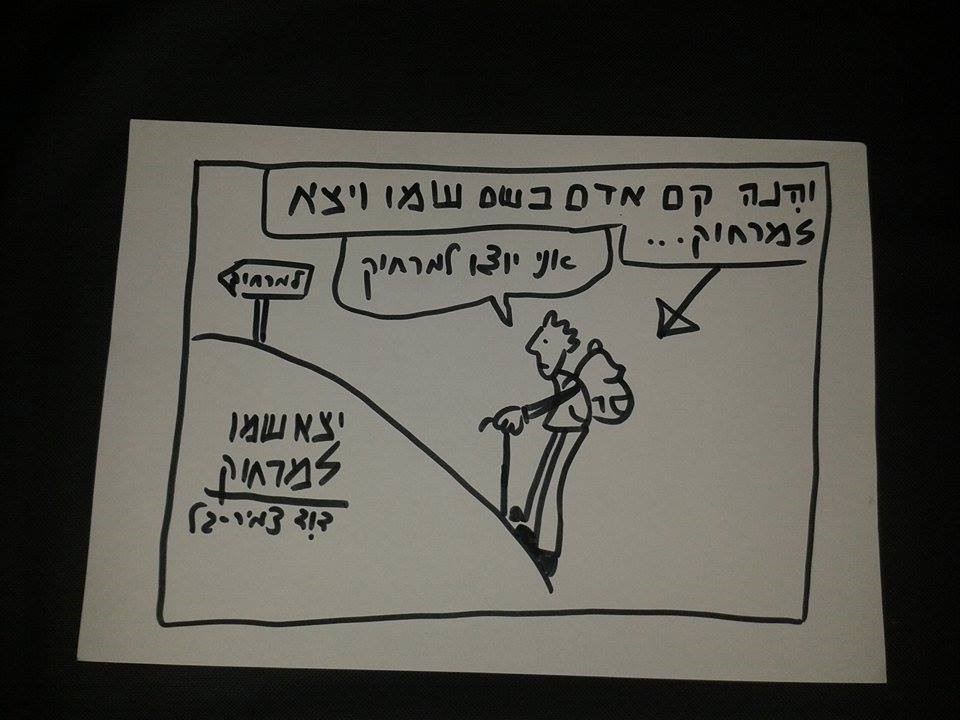 והִנה קם אדם בשם שמו ויצא
למרחוק...
אני יוצא למרחוק
למרחוק
יצא שמו
למרחוק
דוִד צמיר-בל